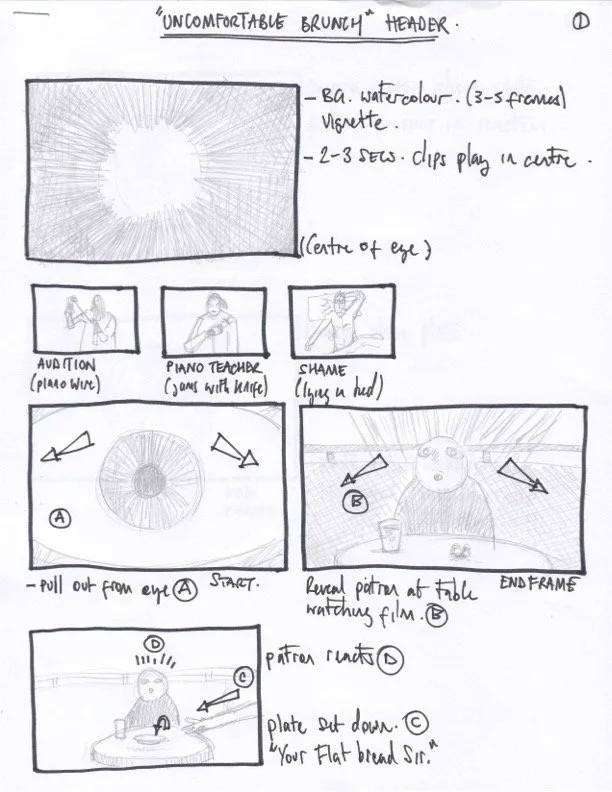 "UNCOMFORTABLE BRUNCH" HEADER.
①
- BG. watercolour. (3-5 frames)
Vignette.
- 2-3 SECS. clips play in centre.
(Centre of eye)
AUDITION
(piano wire)
PIANO TEACHER
(jams with knife)
SHAME
(lying in bed)
A
B
- Pull out from eye Ⓐ START.
Reveal patron at table
watching film. Ⓑ
END FRAME
D
C
patron reacts Ⓓ
plate set down. Ⓒ
"Your Flat bread Sir."